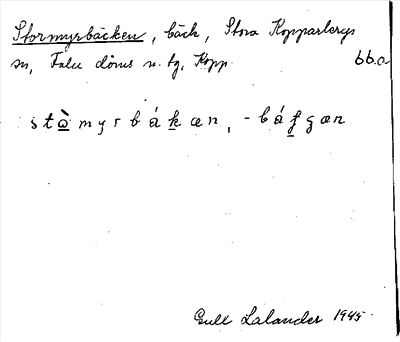 Stormyrbäcken, bäck, Stora Kopparbergs
sn, Falu döms n. tg, Kopp.
66.a
stòmyrbákæn, -báfgæn
Gull Lalander 1945.